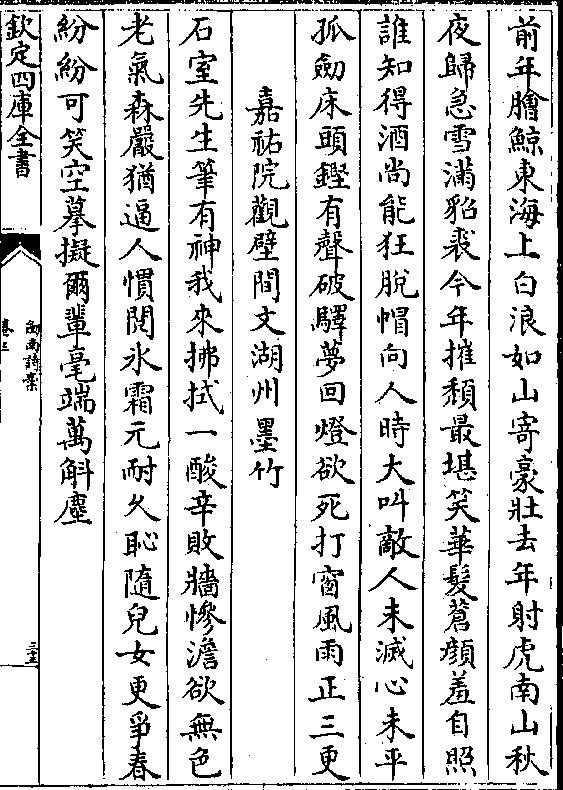 前年膾鯨東海上白浪如山寄豪壯去年射虎南山秋
夜歸急雪滿貂裘今年摧頹最堪笑華髮蒼顔羞自照
誰知得酒尚能狂脫帽向人時大叫敵人未滅心未平
孤劒床頭鏗有聲破驛夢回燈欲死打窗風雨正三更
嘉祐院觀壁間文湖州墨竹
石室先生筆有神我來拂拭一酸辛敗牆慘澹欲無色
老氣森嚴猶逼人慣閱氷霜元耐久恥隨兒女更爭春
紛紛可笑空摹擬爾輩毫端萬斛塵
欽定四庫全書
劒南詩稾
卷三